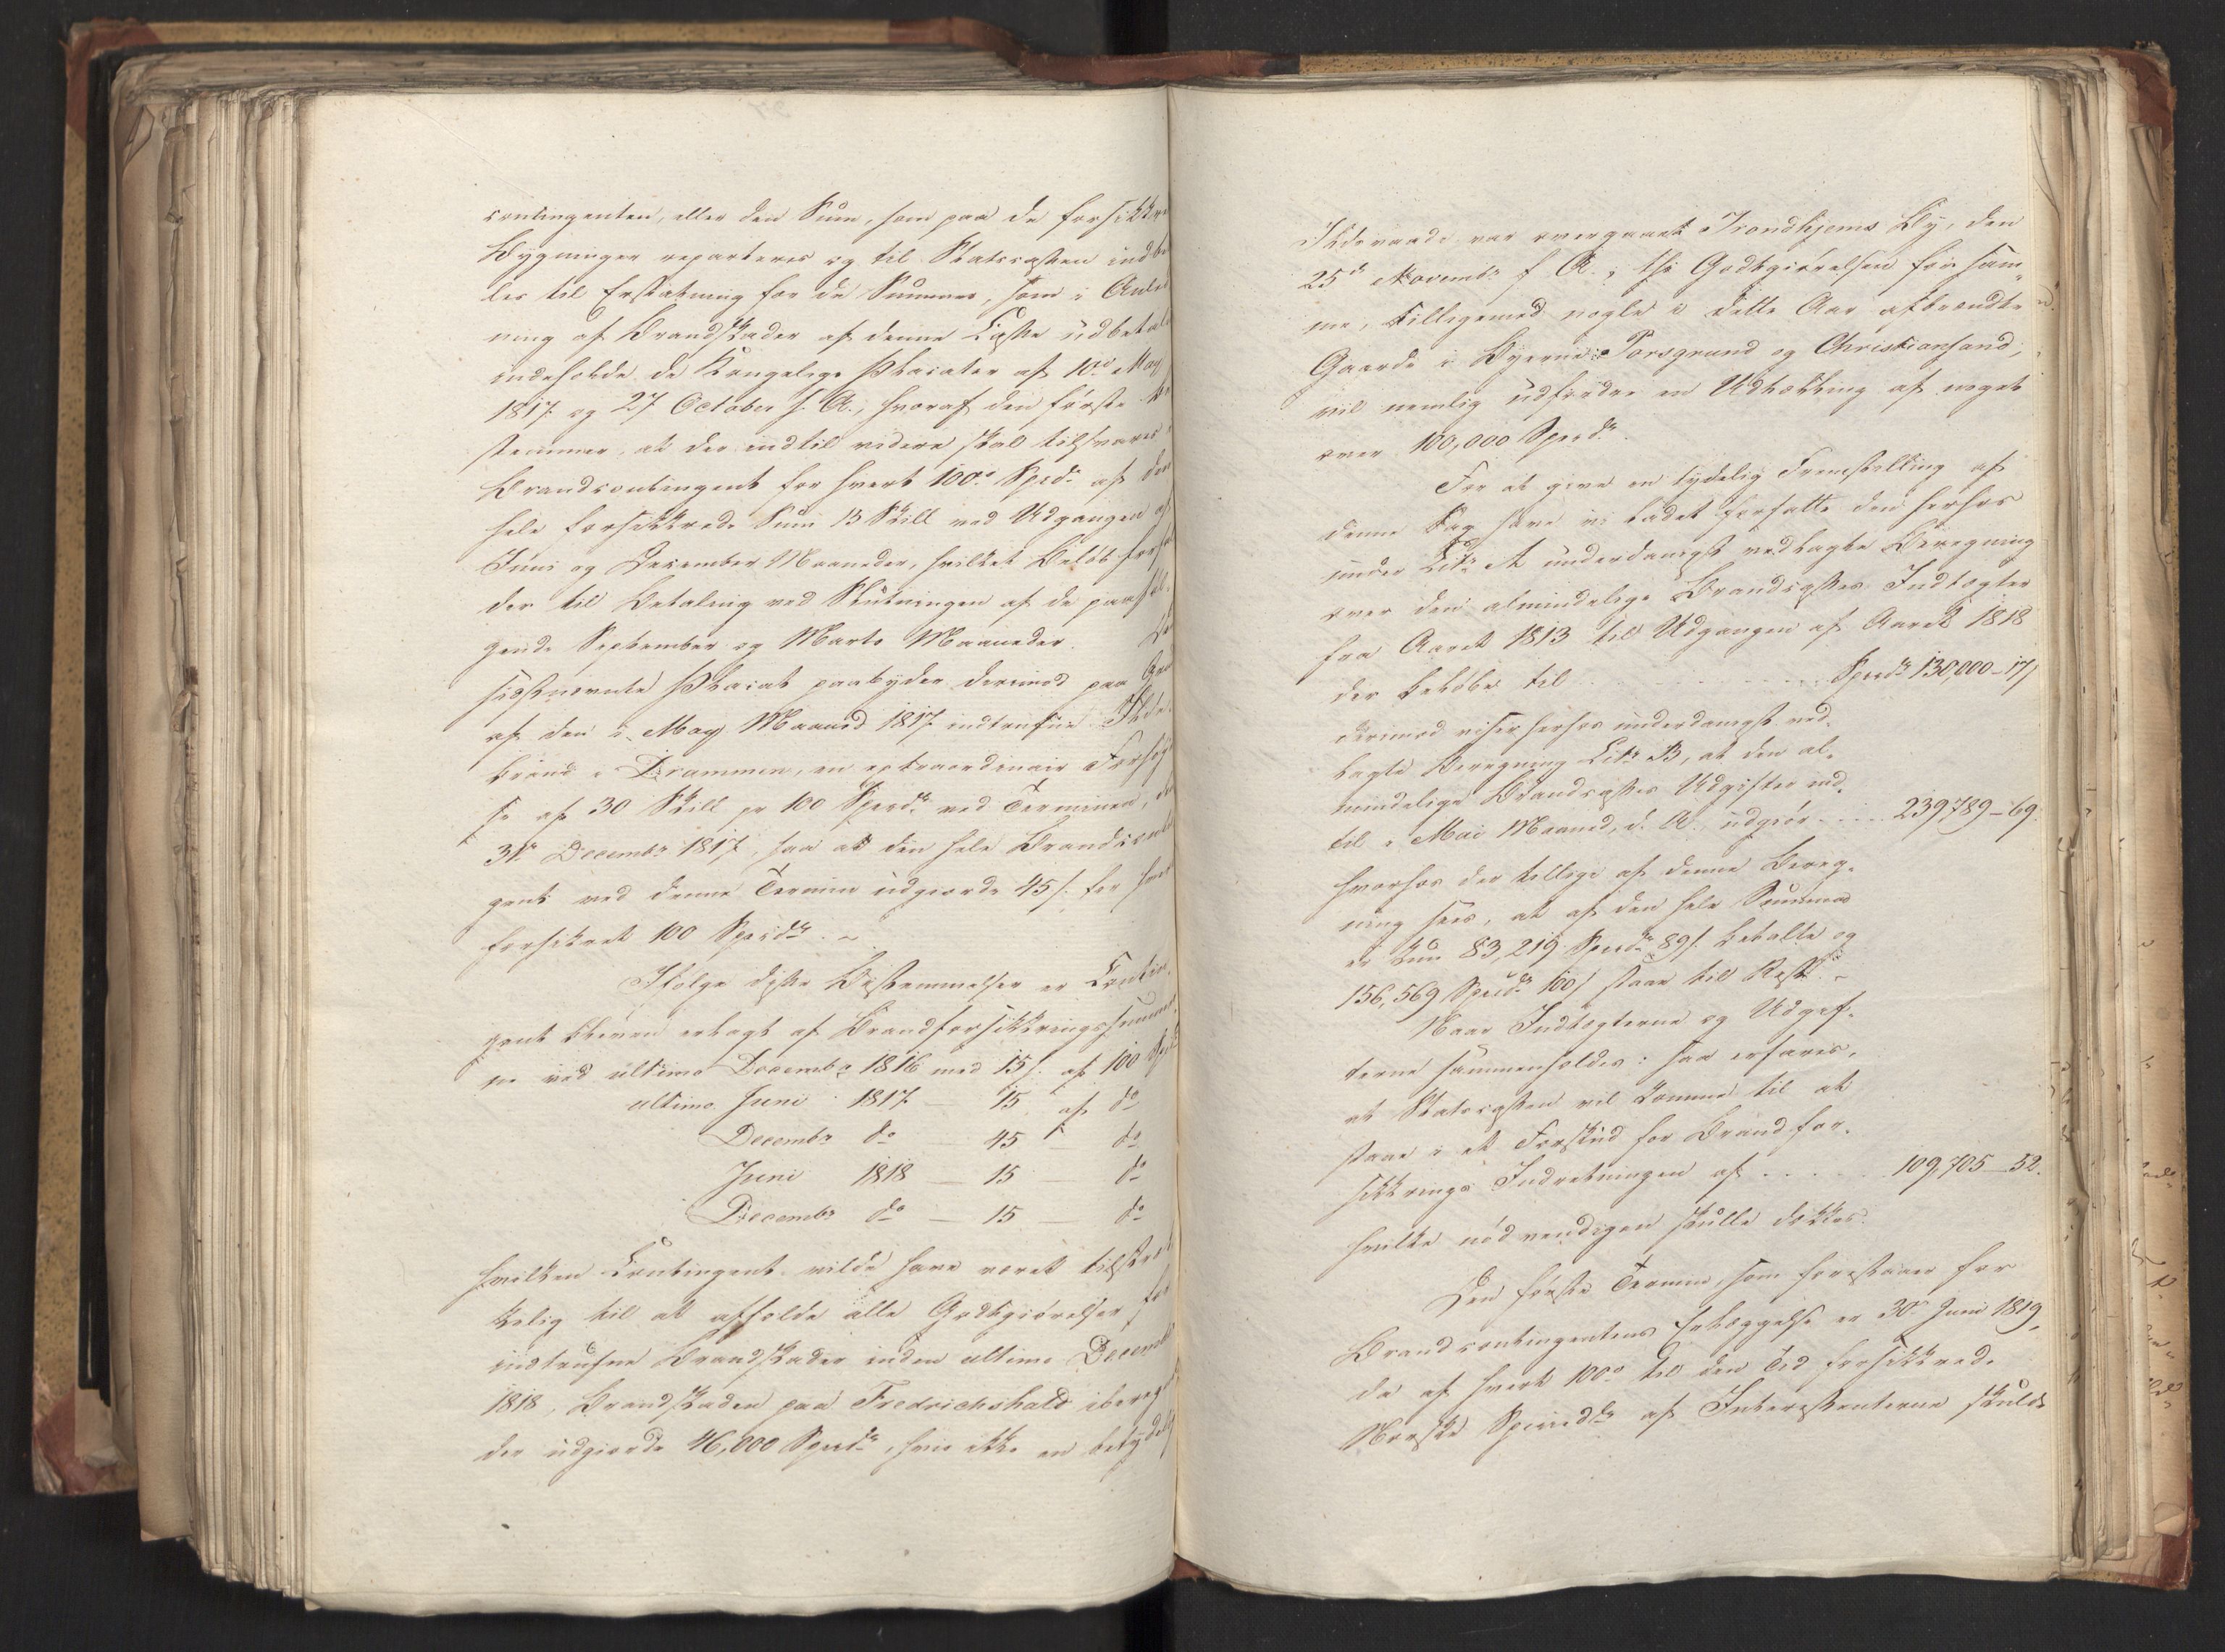 contingenten, eller den Sum, som paa de forsikkre
Bygninger reparteres og til Statscassen indbe
les til Erstatning for de Summer, som i Anled
ning af Brandskader af denne Casse udbetal
indeholde de Kongelige Placater af 10de May
1817 og 27 October s. A., hvoraf den første be
stemmer, at der indtil videre skal tilsvares i
Brandcontingent for hvert 100de Spd. af den
hele forsikkrede Sum 15 Skill ved Udgangen af
Juni og December Maaneder, hvilket Beløb forfal
der til Betaling ved Slutningen af de paaføl-
gende September og Marts Maaneder. De
sidstnævnte Placat paabyder derimod paa Gru
af den i May Maaned 1817 indtrufne Ilde-
brand i Drammen, en extraordinair Forhøj
se af 30 Skill pr 100 Specd. ved Terminen, de
31te Decembr 1817, saa at den hele Brandcont
gent ved denne Termin udgiorde 45 s. for hver
forsikret 100 Specd.
Ifølge disse Bestemmelser er Contin-
gent bleven erlagt af Brandforsikkringssumme
ne ved ultimo Decembr 1816 med 15 s. af 100 Spd
ultimo Juni 1817 — 15 af do
Decembr do — 45 — do
Juni 1818 — 15 — do
Decembr do — 15 — do
hvilken Contingent vilde have været tilstræk
kelig til at afholde alle Godtgiørelser for
indtrufne Brandskader inden ultimo Decemb
1818, Brandskaden paa Fredrichshald ibereg
der udgiorde 46,000 Specd., hvis ikke en betydelig
Ildsvaade var overgaaet Trondhjems By, den
25de Novembr f. A.; thi Godtgiørelsen for sam-
me, tilligemed nogle i dette Aar afbrændte
Gaarde i Byerne Porsgrund og Christiansand,
vil nemlig udfordre en Udtælling af noget
over 100,000 Specd.
For at give en tydelig Fremstilling af
denne Sag have vi ladet forfatte den herhos
under Litr. A underdanigst vedlagte Beregning
over den almindelige Brandcasses Indtægter
fra Aaret 1813 til Udgangen af Aaret 1818
der beløbe til . . . . . . Specd. 130,000 – 17
derimod viser herhos underdanigst ved-
lagte Beregning Litr. B, at den al-
mindelige Brandcasses Udgifter ind-
til i Mai Maaned, d. A. udgiør . . . . 239789 – 69.
hvorhos der tillige af denne Bereg-
ning sees, at af den hele Summa
er kun 83,219 Specd. 89 s. betalte og
156,569 Specd. 100 s staae til Rest.
Naar Indtægterne og Udgif-
terne sammenholdes: saa erfares,
at Statscassen vil komme til at
staae i et Forskud for Brandfor-
sikkrings Indretningen af . . . . 109,705 – 52.
hvilke nødvendigen skulle dækkes.
Den første Termin, som forestaaer for
Brandcontingentens Erlæggelse er 30te Juni 1819,
da af hvert 100de til den Tid forsikkrede
Norske Specied. af Interessenterne skulde